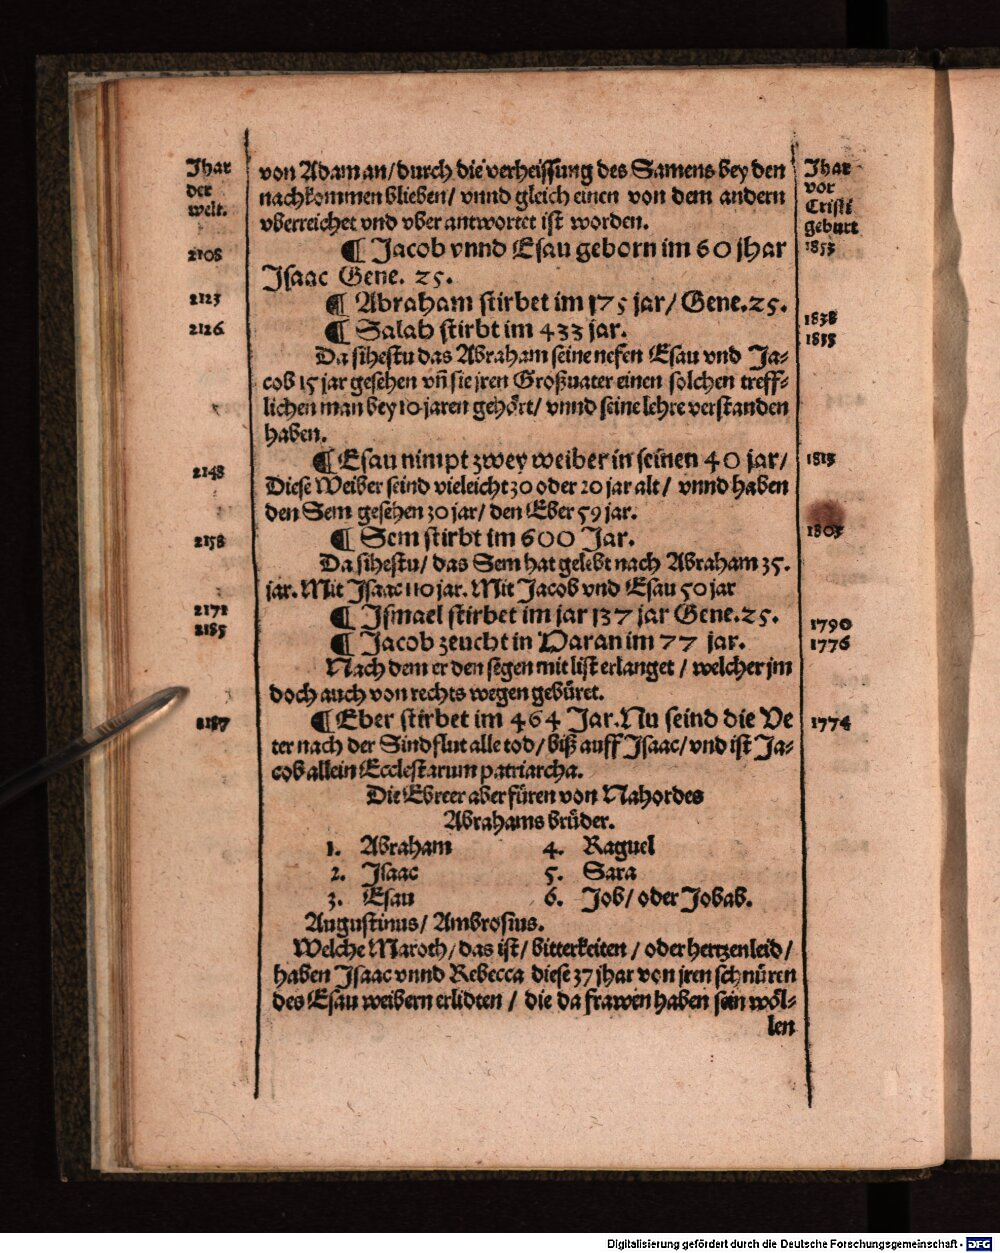 Jhar
der
welt.
Jhar
vor
Cristi
geburt
von Adam an/durch die verheissung des Samens bey den
nachkommen blieben/ vnnd gleich einen von dem andern
vberreichet vnd vber antwortet ist worden.
2108 ¶ Jacob vnnd Esau geborn im 60 jhar 1853
Jsaac Gene. 25.
2123 ¶ Abraham stirbet im 175 jar/ Gene.25. 1838
2126 ¶ Salah stirbt im 433 jar. 1835
Da sihestu das Abraham seine nefen Esau vnd Ja-
cob 15 jar gesehen vñ sie jren Großuater einen solchen treff-
lichen man bey 10 jaren gehört/ vnnd seine lehre verstanden
haben.
2148 ¶ Esau nimpt zwey weiber in seinen 40 jar/ 1813
Diese Weiber seind vieleicht 30 oder 20 jar alt/ vnnd haben
den Sem gesehen 30 jar/ den Eber 59 jar.
2158 ¶ Sem stirbt im 600 Jar. 1803
Da sihestu/ das Sem hat gelebt nach Abraham 35.
jar. Mit Jsaac 110 jar. Mit Jacob vnd Esau 50 jar
2171 ¶ Jsmael stirbet im jar 137 jar Gene.25. 1790
2185 ¶ Jacob zeucht in Haran im 77 jar. 1776
Nach dem er den segen mit list erlanget / welcher jm
doch auch von rechts wegen gebüret.
2187 ¶ Eber stirbet im 464 Jar. Nu seind die Ve 1774
ter nach der Sindflut alle tod/ biß auff Jsaac/ vnd ist Ja-
cob allein Ecclesiarum patriarcha.
Die Ebreer aber füren von Nahor des
Abrahams brüder.
1. Abraham 4. Raguel
2. Jsaac 5. Sara
3. Esau 6. Job/ oder Jobab.
Augustinus/ Ambrosius.
Welche Maroth/ das ist/ bitterkeiten / oder hertzenleid/
haben Jsaac vnnd Rebecca diese 37 jhar von jren schnüren
des Esau weibern erlidten / die da frawen haben sein wöl-
len
Digitalisierung gefördert durch die Deutsche Forschungsgemeinschaft - DFG